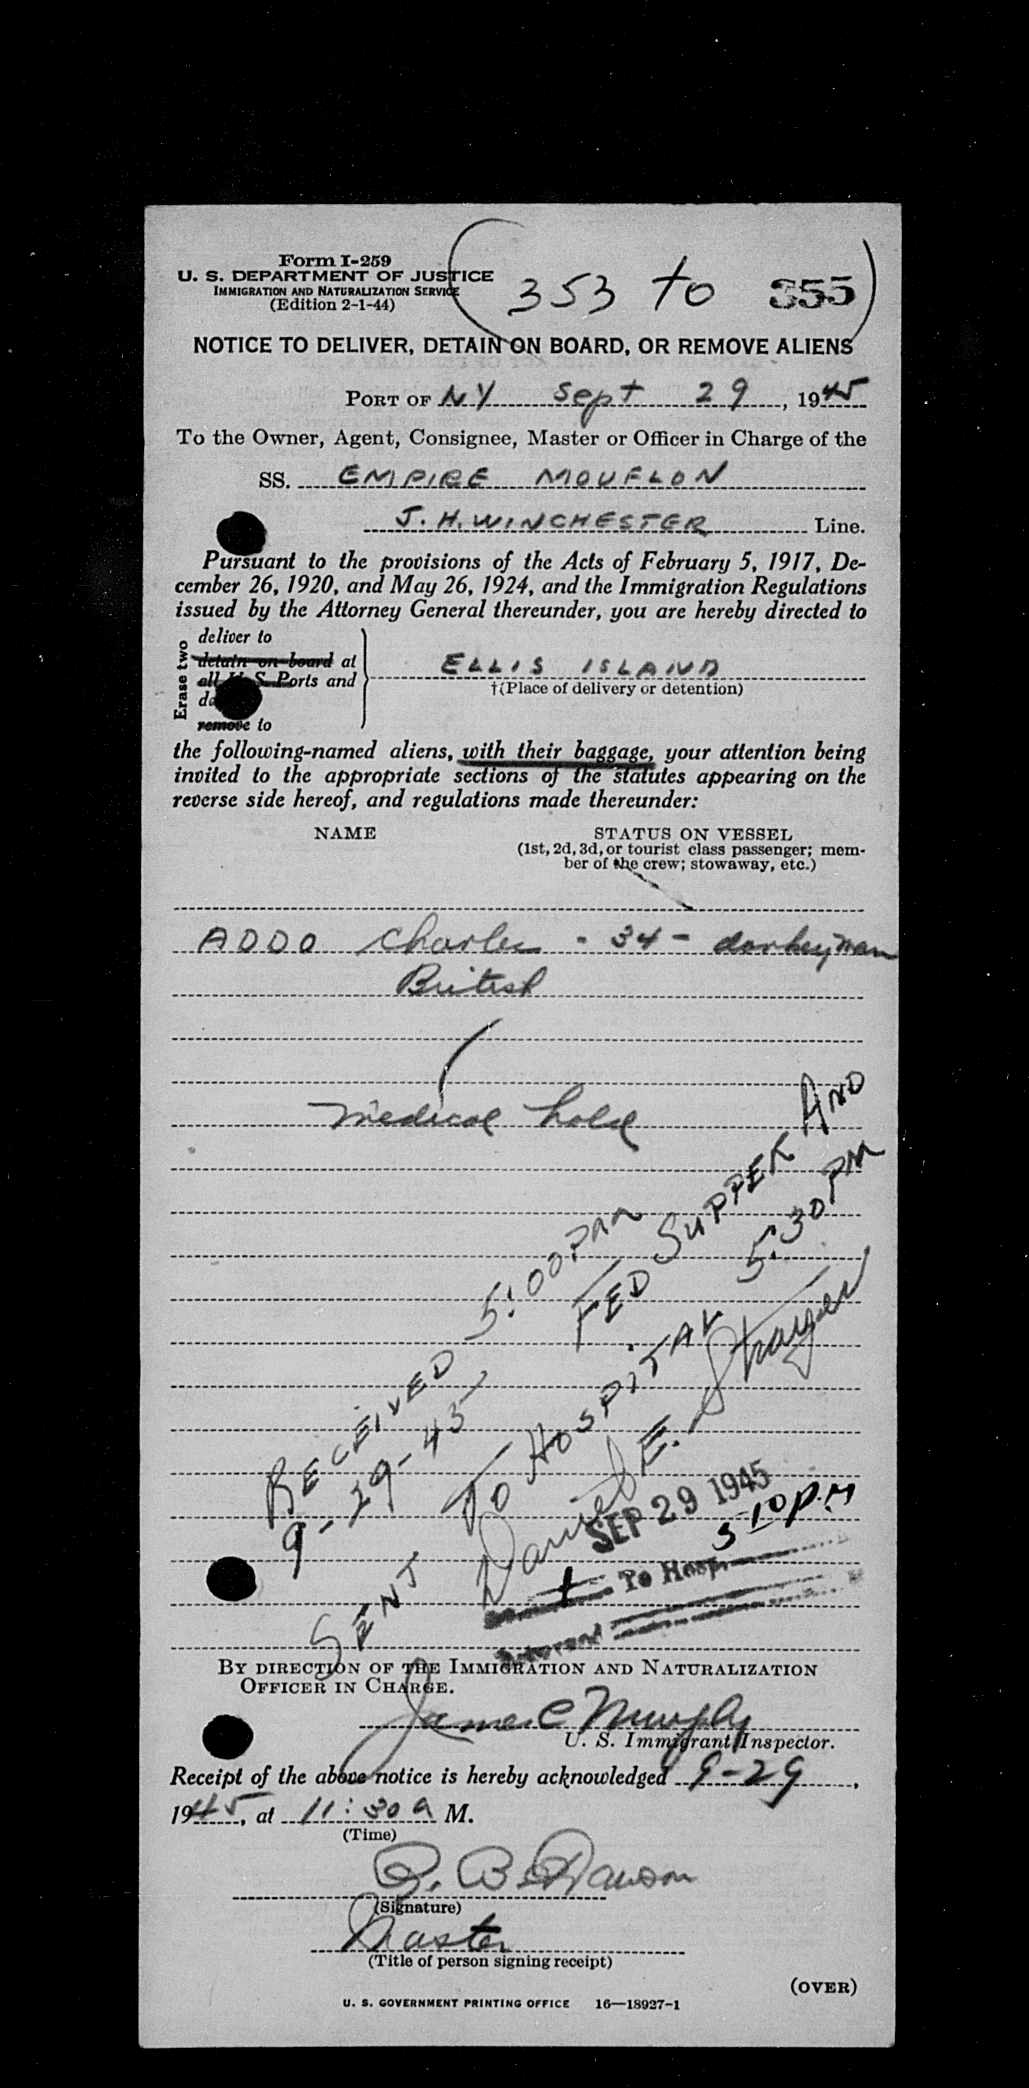 Form I-259
U. S. DEPARTMENT OF JUSTICE
IMMIGRATION AND NATURALIZATION SERVICE
(Edition 2-1-44)
353 to 355
NOTICE TO DELIVER, DETAIN ON BOARD, OR REMOVE ALIENS
PORT OF NY Sept 29, 1945
To the Owner, Agent, Consignee, Master or Officer in Charge of the
SS. EMPIRE MOUFLON
J. H. WINCHESTER Line.
Pursuant to the provisions of the Acts of February 5, 1917, De-
cember 26, 1920, and May 26, 1924, and the Immigration Regulations
issued by the Attorney General thereunder, you are hereby directed to
Erase two
deliver to
detain on board at
all U. S. Ports and
remove to
ELLIS ISLAND
†(Place of delivery or detention)
the following-named aliens, with their baggage, your attention being
invited to the appropriate sections of the statutes appearing on the
reverse side hereof, and regulations made thereunder:
NAME STATUS ON VESSEL
(1st, 2d, 3d, or tourist class passenger; mem-
ber of the crew; stowaway, etc.)
ADDO Charles - 34 - donkeyman
British
Medical hold
RECEIVED 5:00 PM
9-29-45
FED SUPPER AND
SENT TO HOSPITAL 5:30 PM
Daniel E.
SEP 29 1945
5 10 P.M
1 To Hosp.
BY DIRECTION OF THE IMMIGRATION AND NATURALIZATION
OFFICER IN CHARGE.
James C Murphy
U. S. Immigrant Inspector.
Receipt of the above notice is hereby acknowledged 9-29,
1945, at 11:30 a M.
(Time)
B. Dawson
(Signature)
Master
(Title of person signing receipt)
(OVER)
U. S. GOVERNMENT PRINTING OFFICE 16—18927-1